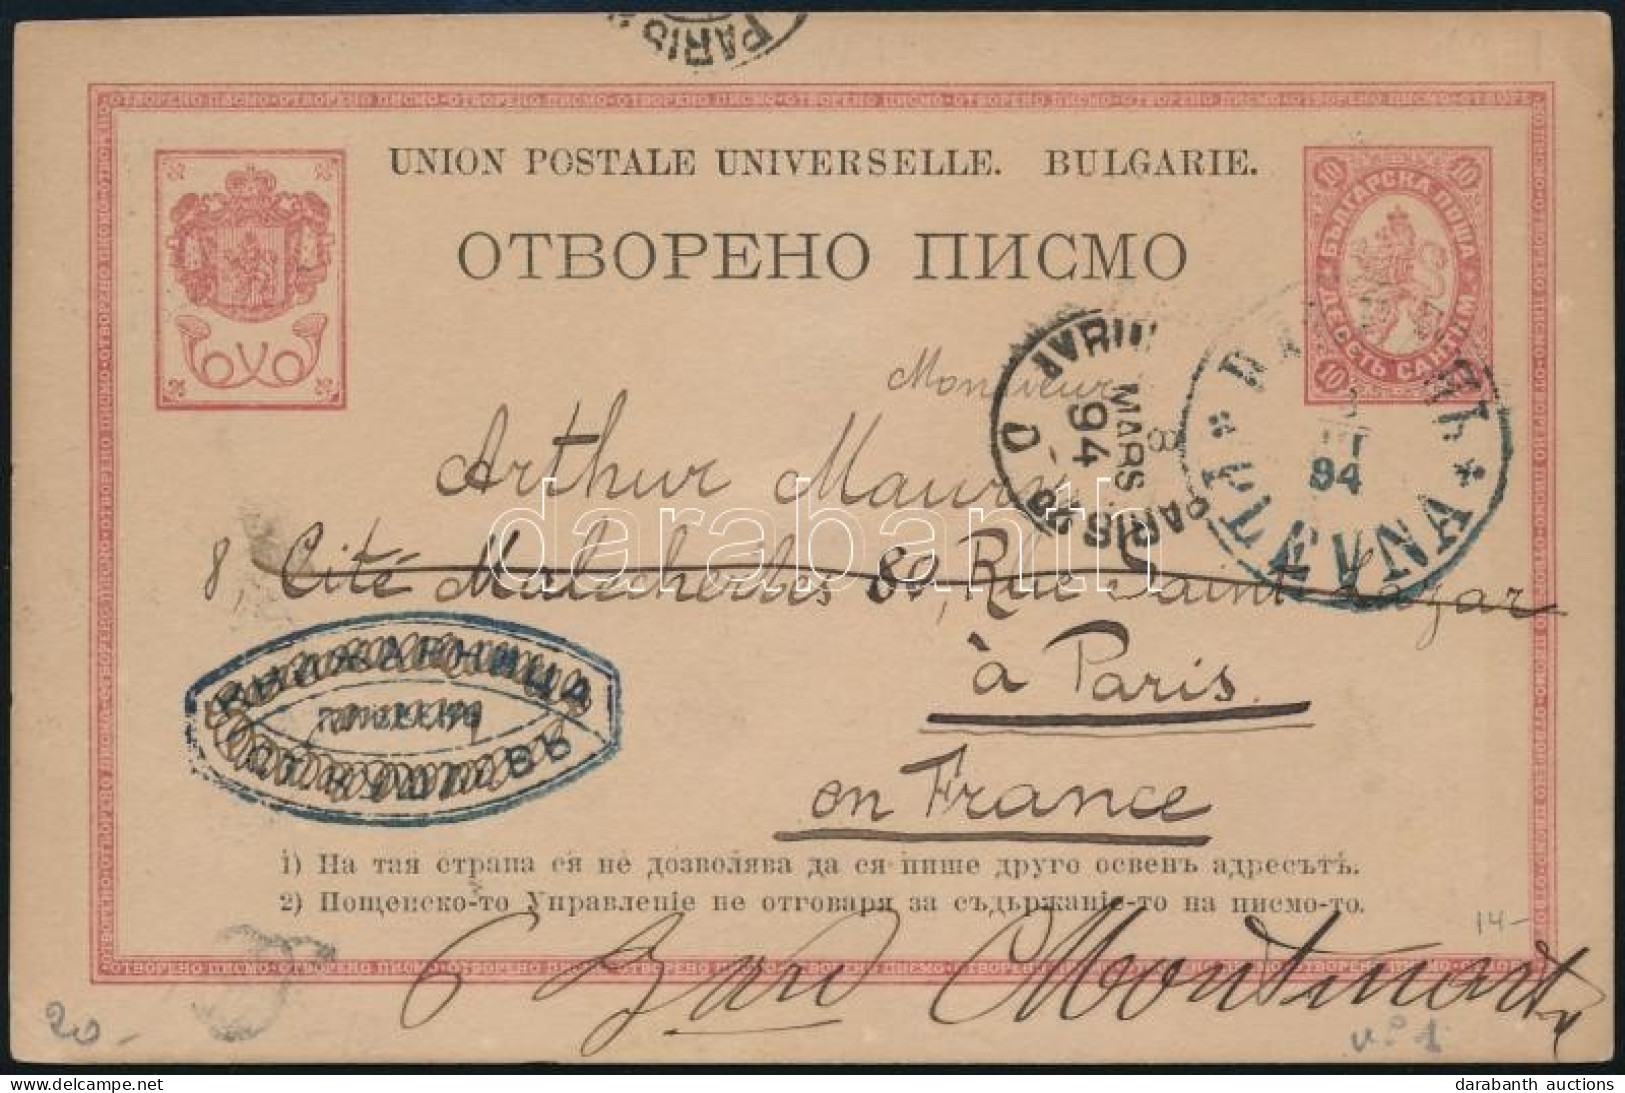 PARIS
UNION POSTALE UNIVERSELLE. BULGARIE.
ОТВОРЕНО ПИСМО
10 10
БЪЛГАРСКА ПОЩА
ДЕСЕТЬ САНТИМ
10
Monsieur
Arthur Maury
8, Cité Malesherbes 80, Rue Saint Lazar
à Paris
en France
MARS
94
PARIS
94
VARNA
darabanth
1) На тая страна ся не дозволява да ся пише друго освенъ адресътъ.
2) Пощенско-то Управленіе не отговаря за съдържаніе-то на писмо-то.
6 Bard Montmartre
14-
20-
nº 1
darabanth auctions